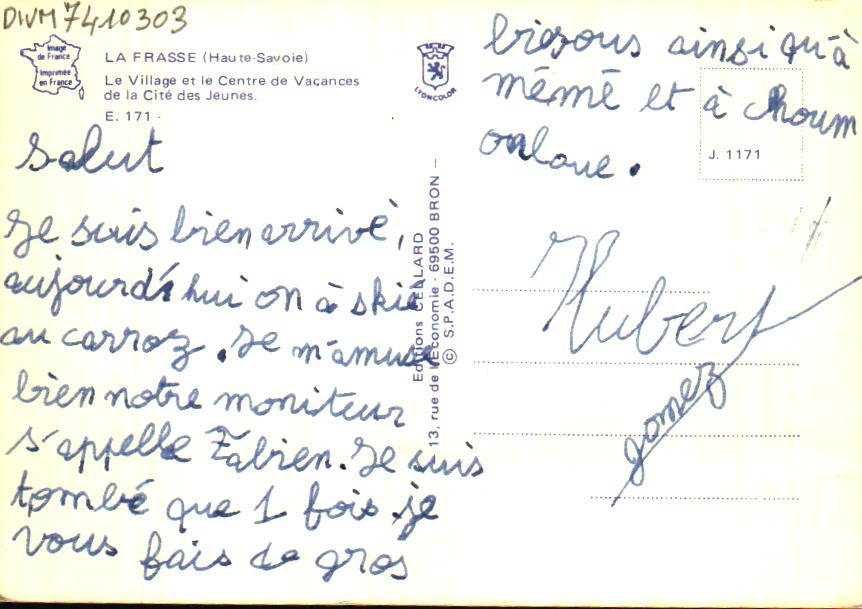 DWM7410303
Image
de France
Imprimée
en France
LA FRASSE (Haute-Savoie)
Le Village et le Centre de Vacances
de la Cité des Jeunes.
E. 171 -
LYONCOLOR
Salut
Je suis bien arrivé,
aujourd'hui on à skié
au carroz. Je m'amuse
bien notre moniteur
s'appelle Fabien. Je suis
tombé que 1 fois je
vous fais de gros
bisous ainsi qu'à
mémé et à
J. 1171
Editions CELLARD
13, rue de l'Economie - 69500 BRON -
© S.P.A.D.E.M.
Hubert
gomez